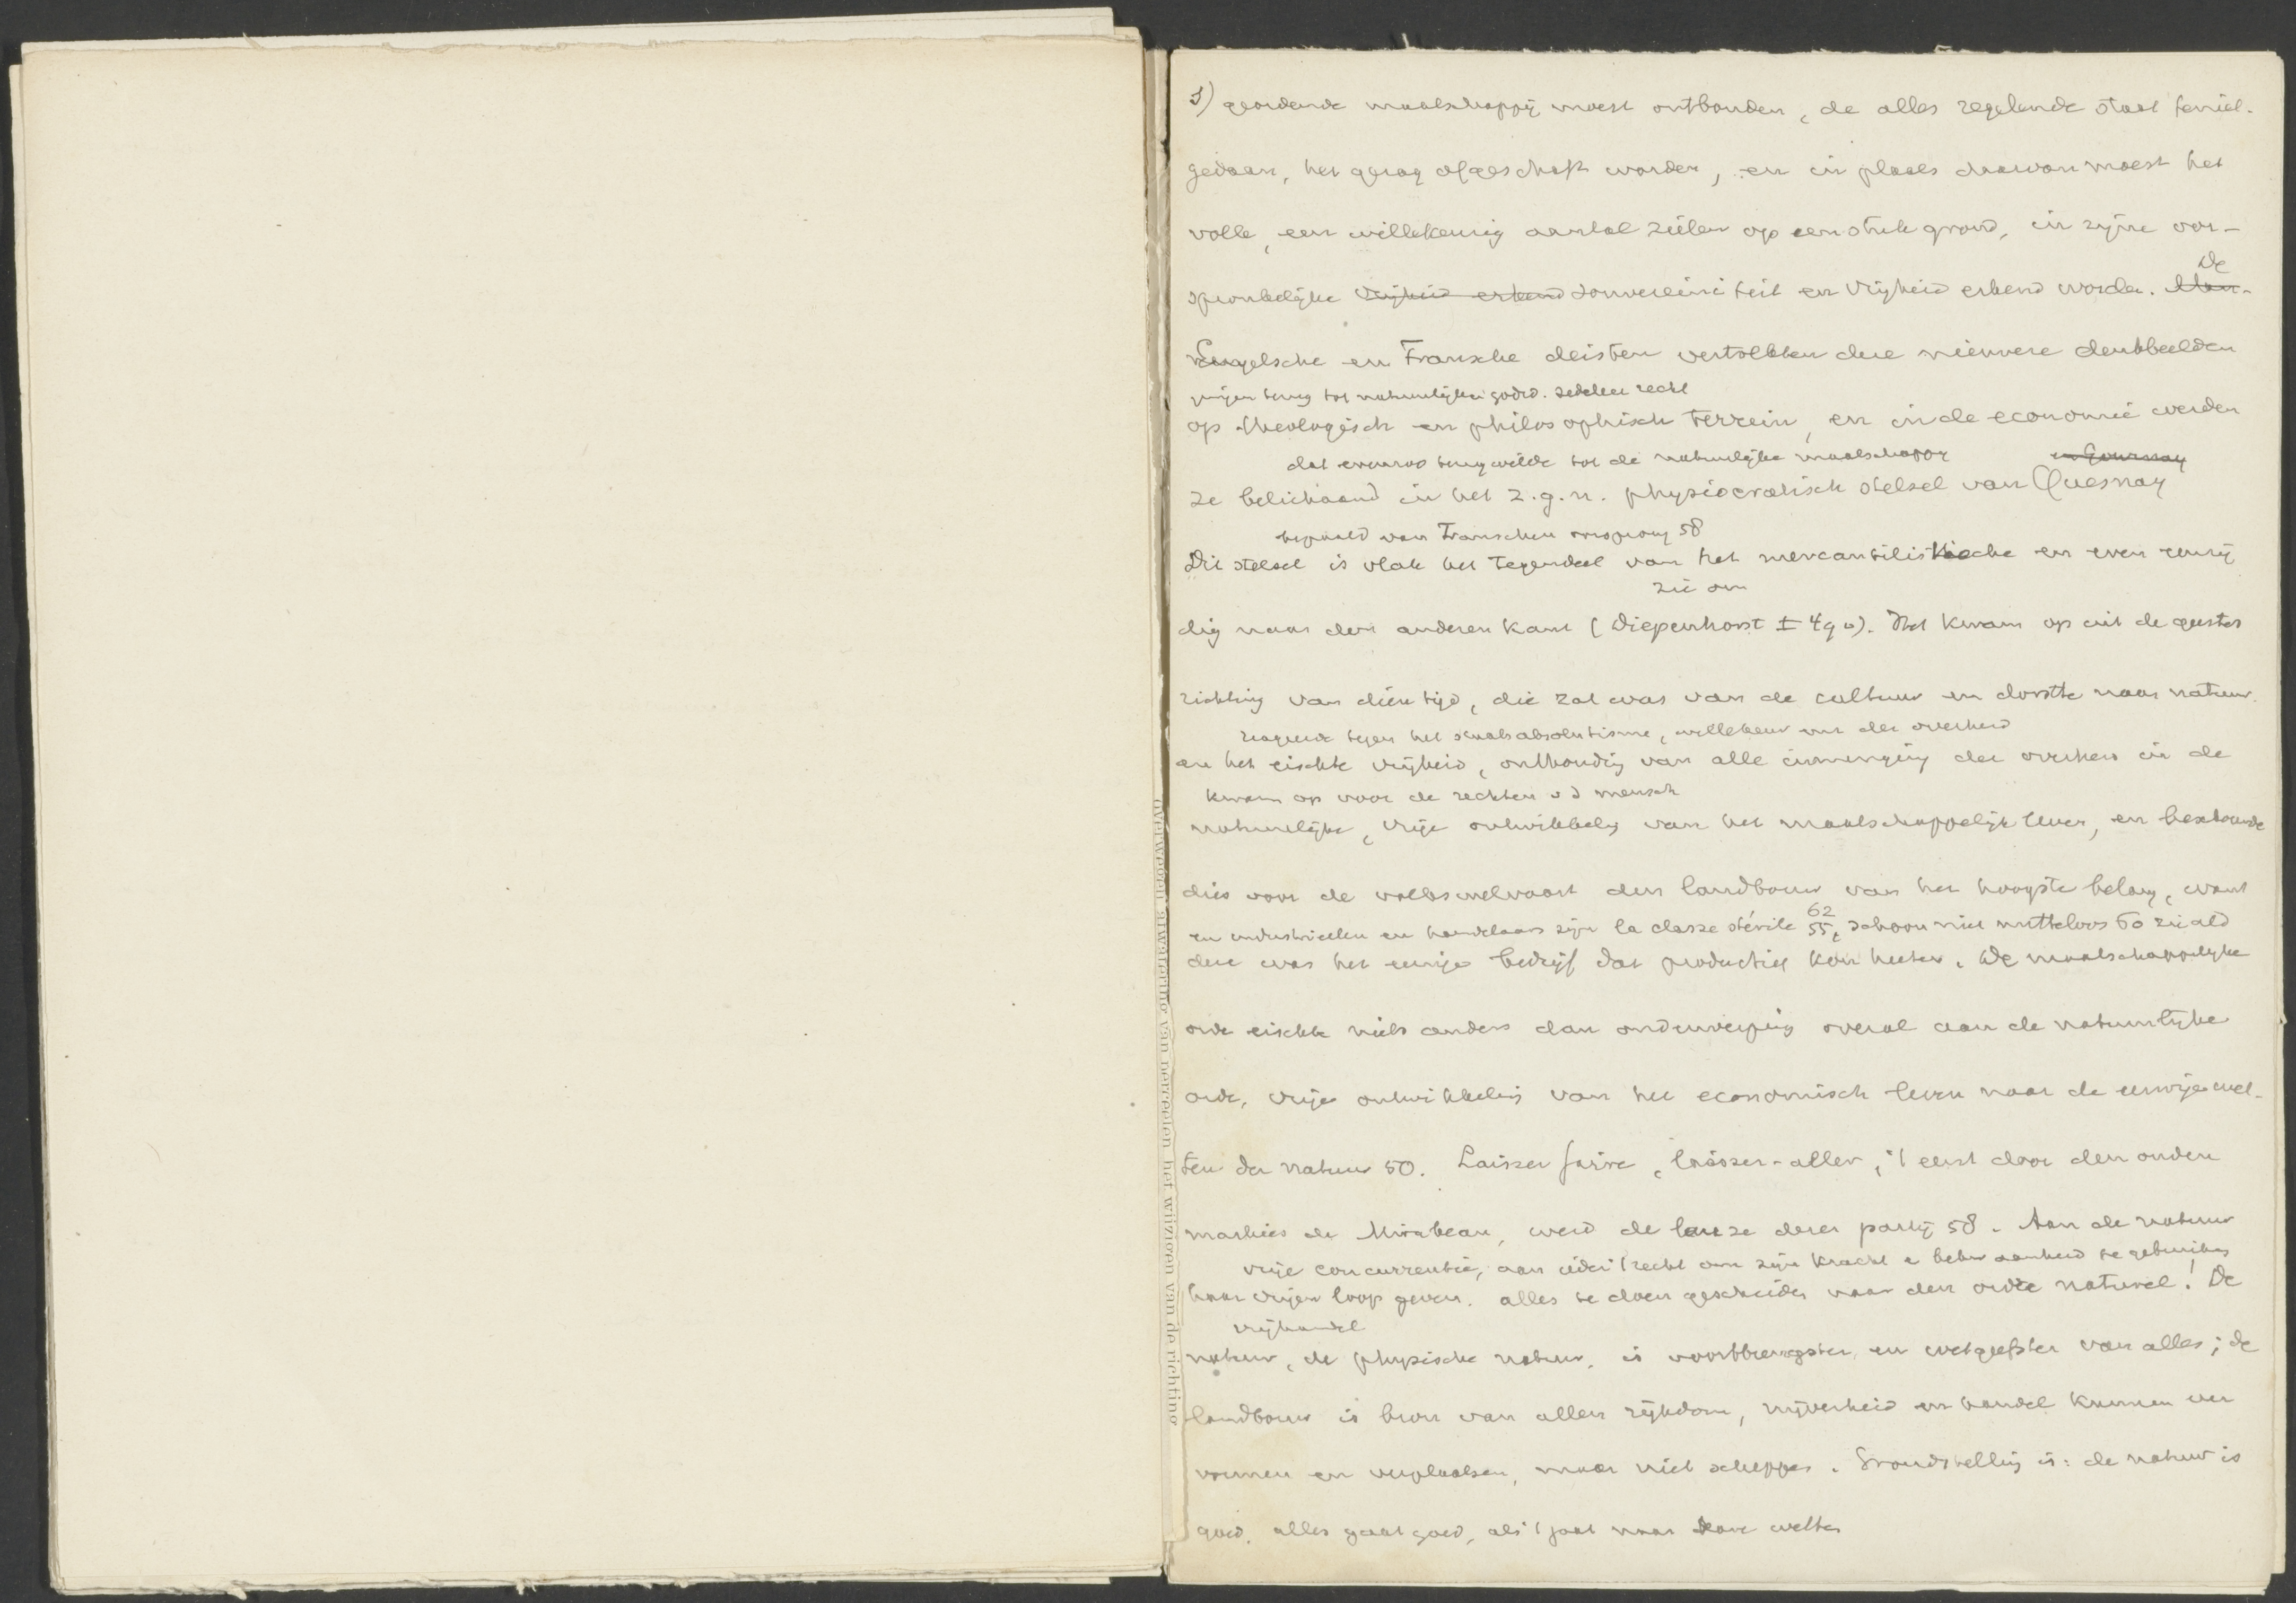 3) geordende maatschappij moest ontbonden, de alles regelende staat teniet-
gedaan, het gezag afgeschaft worden, en in plaats daarvan moest het
volk, een willekeurig aantal zielen op een stuk grond, in zijne oor-
De
spronkelijke vrijheid erkend souvereiniteit en vrijheid erkend worden.
Engelsche en Fransche deisten vertolkten deze nieuwere denkbeelden
gingen terug tot natuurlijken godsd. zedeleer recht
op theologisch en philosophisch terrein, en in de economie werden
dat evenzoo terug wilde tot de natuurlijke maatschappij en Gournay
ze belichaamd in het z.g.n. physiocratisch stelsel van Quesnay
bepaald van Franschen oorsprong 58
Dit stelsel is vlak het tegendeel van het mercantilistische en even eenzij
zie om
dig naar den anderen kant (Diepenhorst ± 490). Het kwam op uit de geestes
richting van dien tijd, die zat was van de cultuur en dorstte naar natuur.
reageerde tegen het staatsabsolutisme, willekeur van der overheid
en het eischte vrijheid, onthouding van alle inmenging der overheid in de
kwam op voor de rechten v d mensch
natuurlijke, vrije ontwikkeling van het maatschappelijk leven, en beschouwde
dies voor de volkswelvaart den landbouw van het hoogste belang, want
62
en industrieelen en handelaars zijn la classe stérile 55, schoon niet nutteloos 60
deze was het eenige bedrijf dat productief kon heeten. De maatschappelijke
orde eischte niets anders dan onderwerping overal aan de natuurlijke
orde, vrije ontwikkeling van het economisch leven naar de eeuwige wet-
ten der natuur 50. Laisser faire, laisser-aller, 't eerst door den ouden
markies de Mirabeau, werd de leuze dezer partij 58. Aan de natuur
vrije concurrentie, aan ieder 't recht om zijn kracht en bekwaamheid te gebruiken
haar vrijen loop geven. alles te doen geschieden naar den ordre naturel! De
vrijhandel
natuur, de physische natuur, is voortbrengster en wetgeefster van alles; de
landbouw is bron van allen rijkdom, nijverheid en handel kunnen ver
vormen en verplaatsen, maar niet scheppen. Grondstelling is: de natuur is
goed, alles gaat goed, als 't gaat naar hare wetten
overwegend afwatering van perceelen het wijzigen van de richting